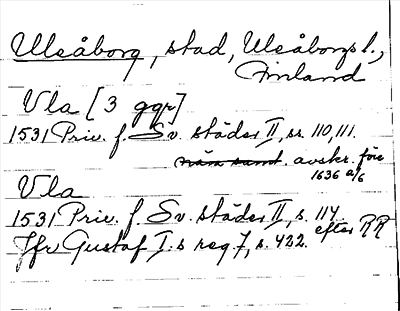 Uleåborg, stad, Uleåborgs l.,
Finland
Vla [3 ggr]
1531 Priv. f. Sv. städer II, ss. 110, 111.
avskr. före
1636 2/6
Vla
1531 Priv. f. Sv. städer II, s. 114.
efter RR
Jfr Gustaf I:s reg 7, s. 422.